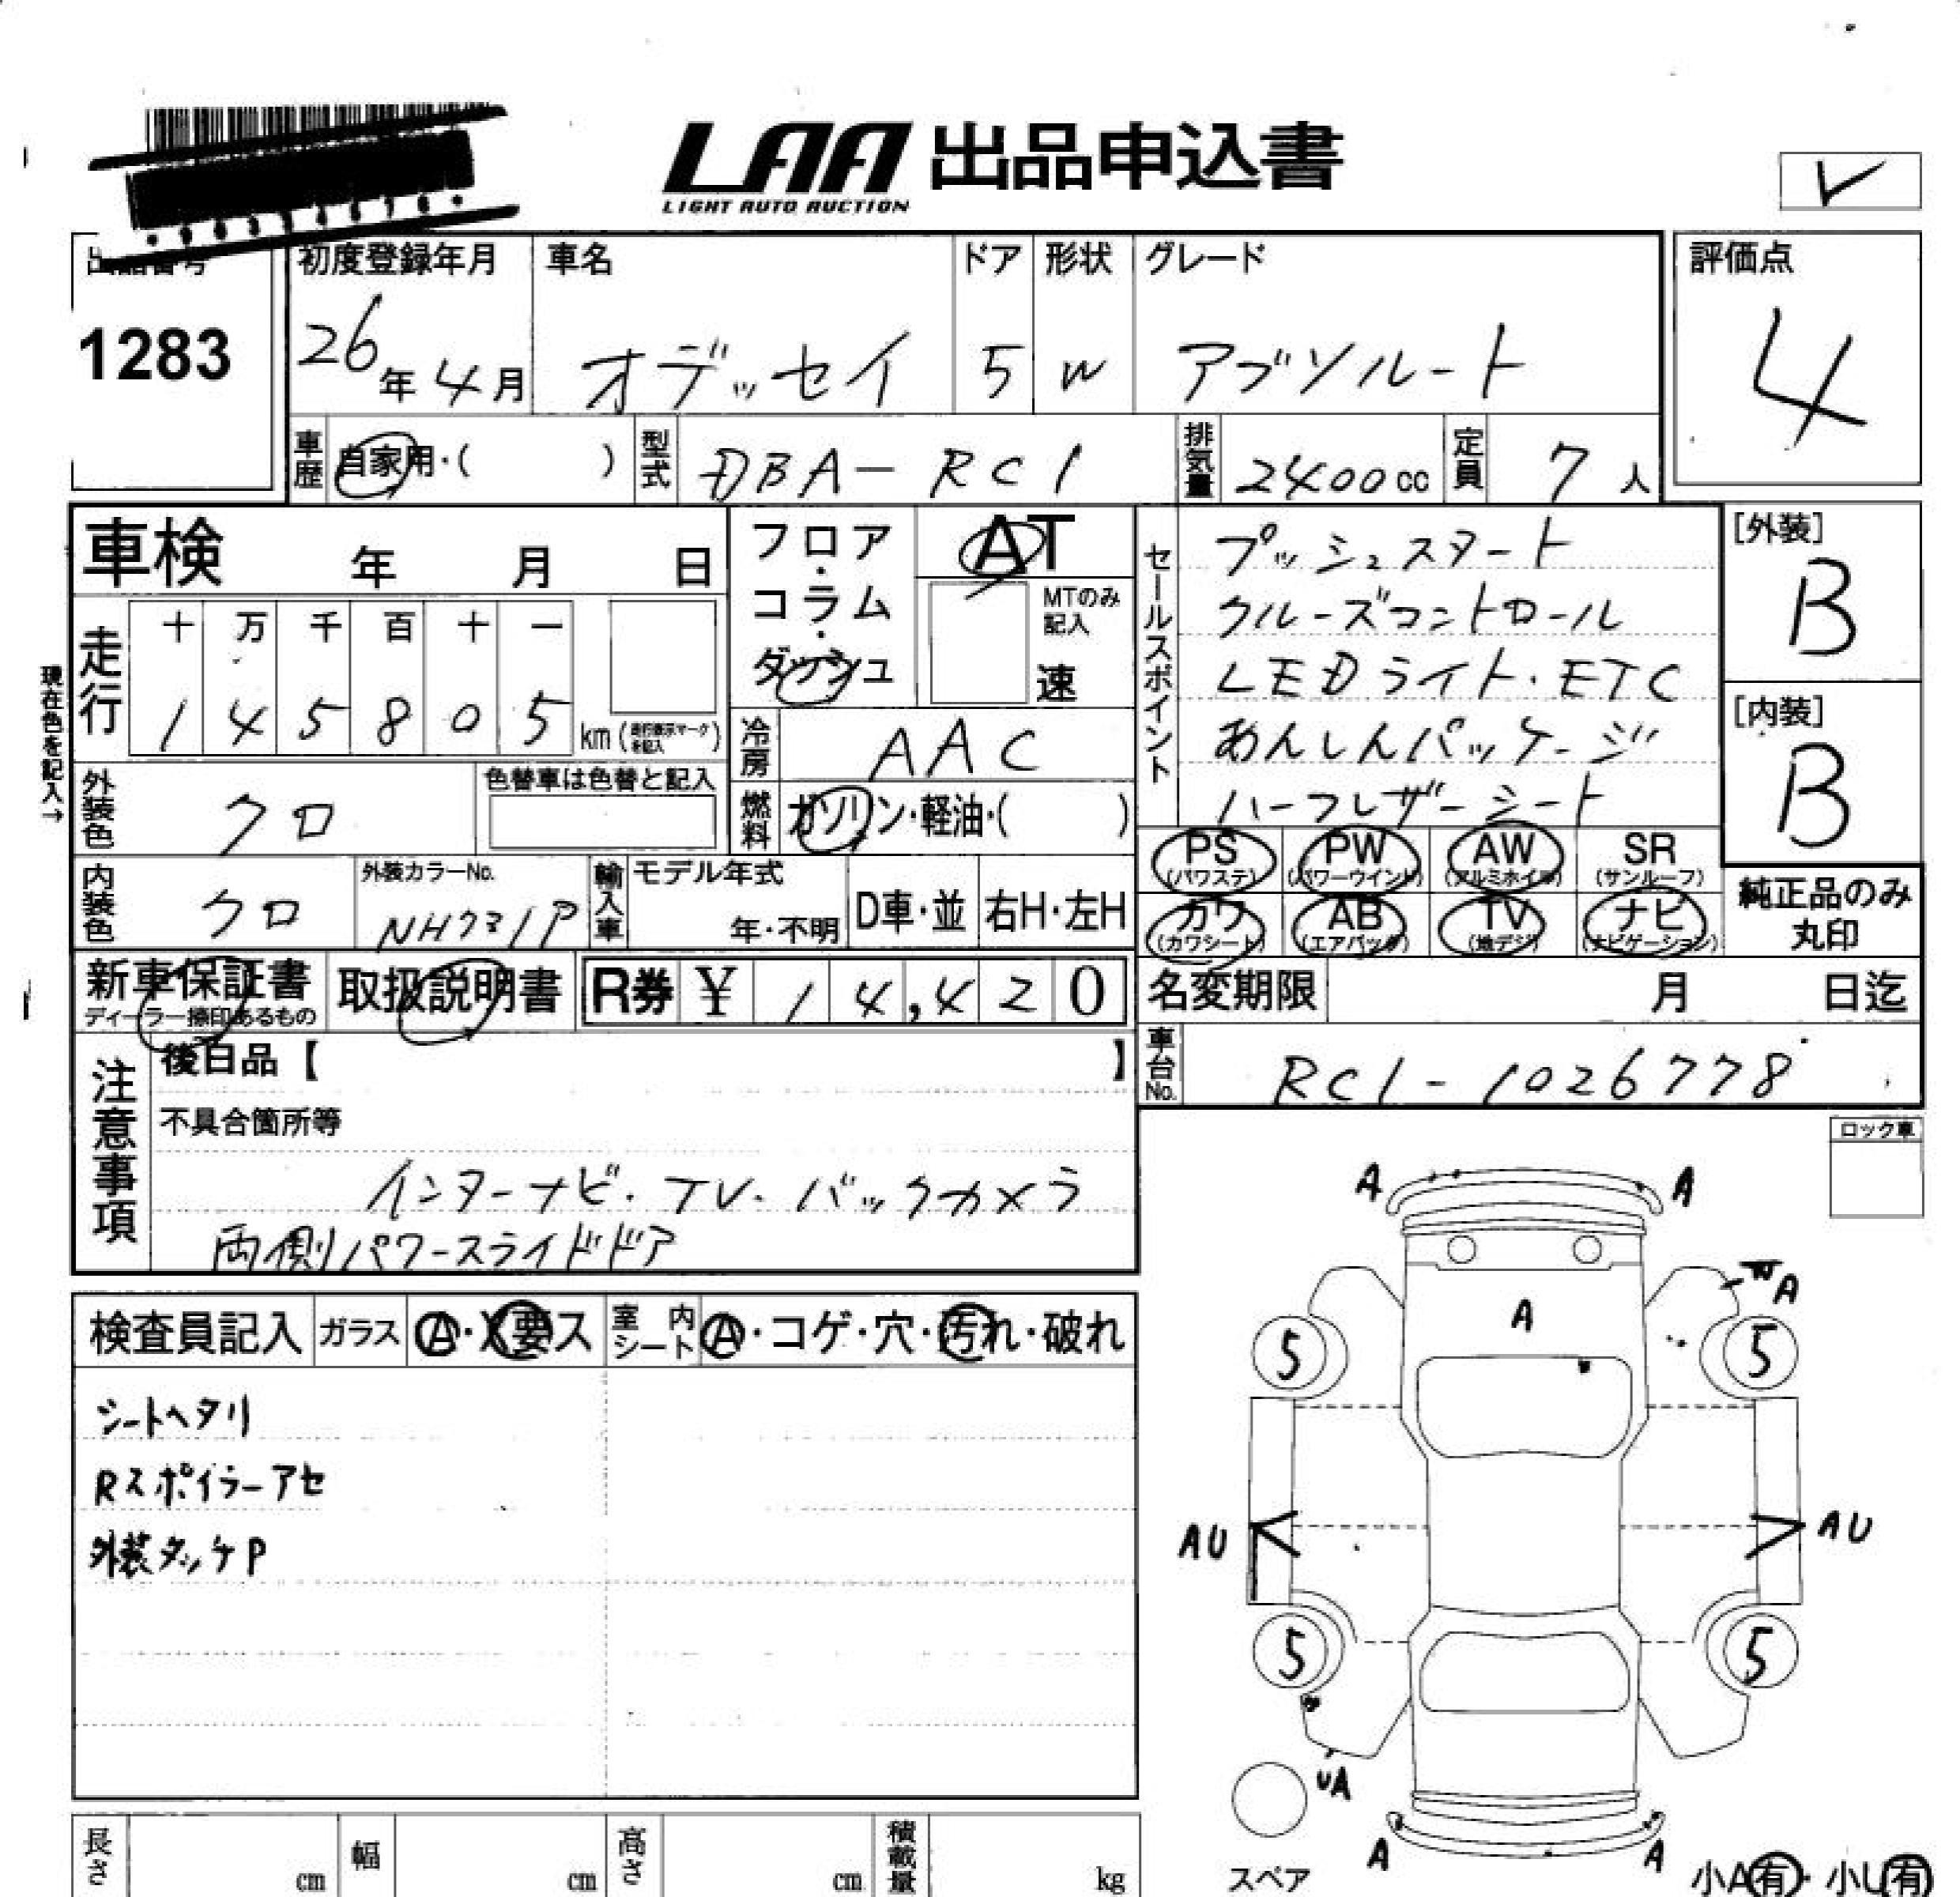 LAA 出品申込書
LIGHT AUTO AUCTION
出品番号
1283
初度登録年月
26年4月
車名
オデッセイ
ドア
5
形状
W
グレード
アブソルート
評価点
4
車歴
自家用・( )
型式
DBA-RC1
排気量
2400cc
定員
7人
車検 年 月 日
現在色を記入→
走行
十 万 千 百 十 一
1 4 5 8 0 5 km(走行表示マークを記入)
フロア・コラム・ダッシュ
AT
MTのみ記入
速
冷房
AAC
燃料
ガソリン・軽油・( )
外装色
クロ
色替車は色替と記入
内装色
クロ
外装カラーNo.
NH731P
輸入車
モデル年式
年・不明
D車・並
右H・左H
セールスポイント
プッシュスタート
クルーズコントロール
LEDライト・ETC
あんしんパッケージ
ハーフレザーシート
[外装]
B
[内装]
B
PS (パワステ)
PW (パワーウインド)
AW (アルミホイル)
SR (サンルーフ)
カワ (カワシート)
AB (エアバッグ)
TV (地デジ)
ナビ (ナビゲーション)
純正品のみ丸印
新車保証書
ディーラー捺印あるもの
取扱説明書
R券 ¥ 14,420
名変期限 月 日迄
車台No.
RC1-1026778
注意事項
後日品【 】
不具合箇所等
インターナビ・TV・バックカメラ
両側パワースライドドア
ロック車
検査員記入
ガラス
A・X要ス
室内シート
A・コゲ・穴・汚れ・破れ
シートヘタリ
Rスポイラーアセ
外装タッチP
A A
A
A
5 5
AU AU
5 5
UA
A A
スペア
小A有・小U有
長さ cm
幅 cm
高さ cm
積載量 kg